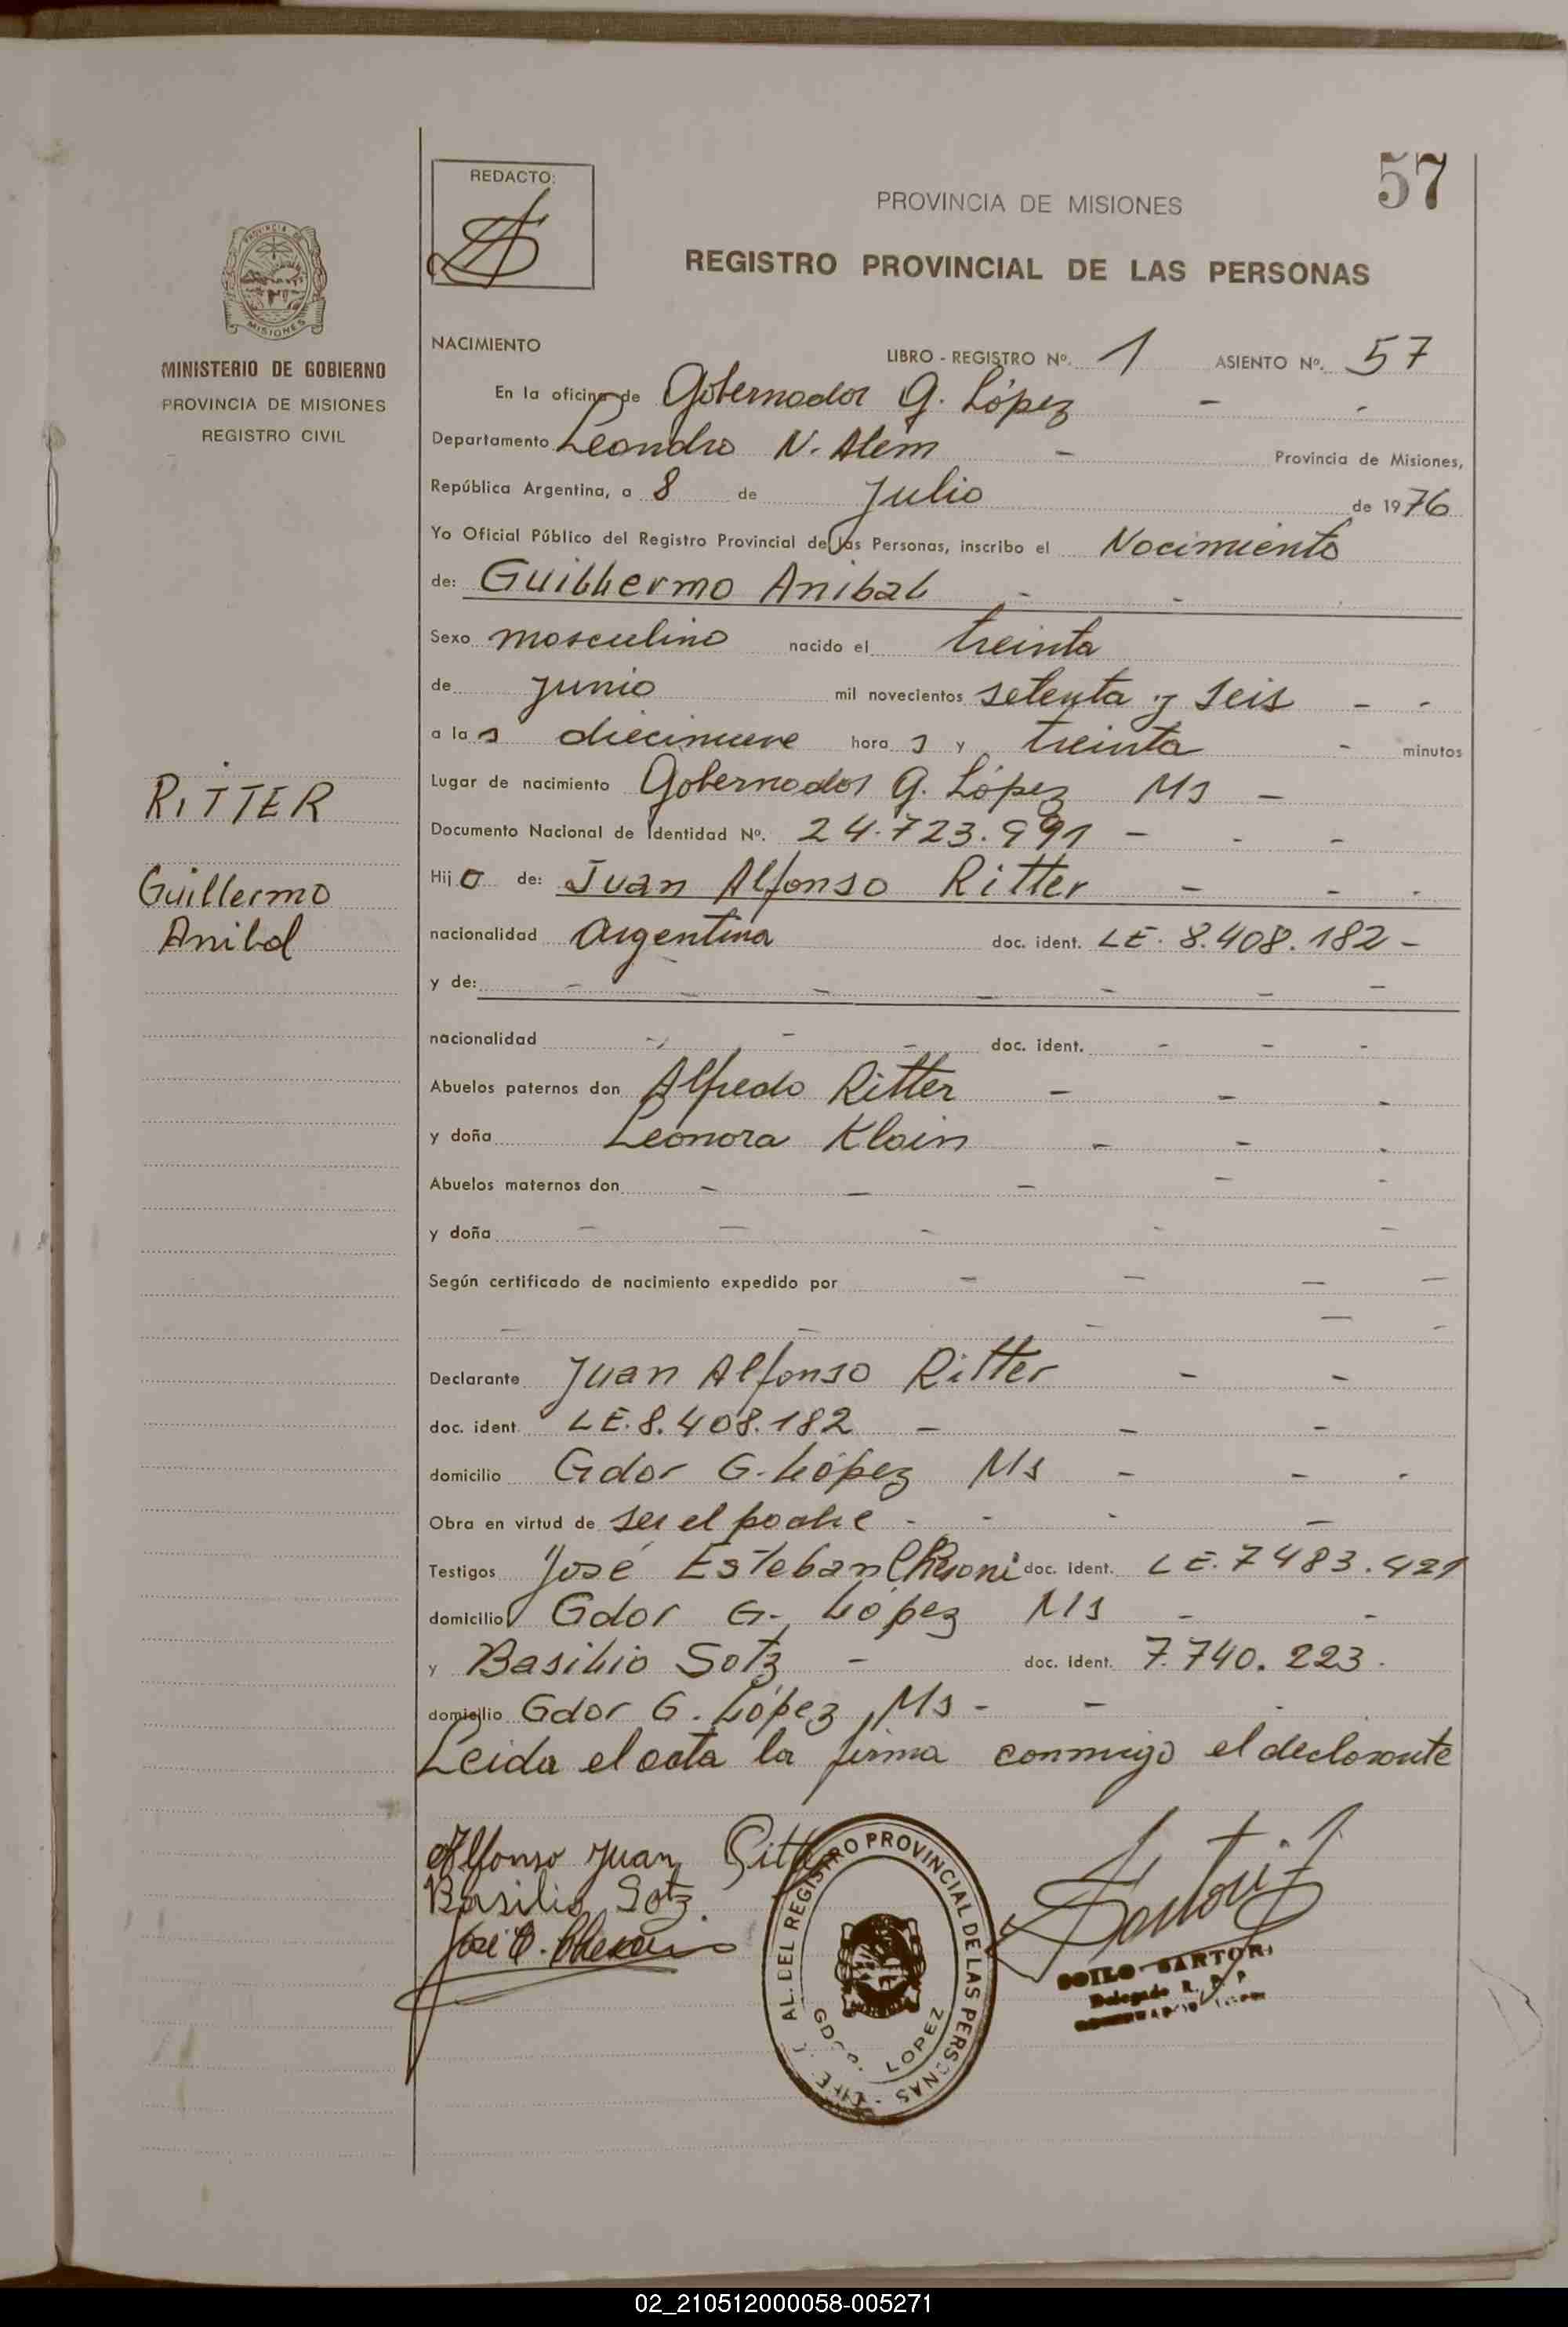 57
REDACTO:
PROVINCIA DE MISIONES
REGISTRO PROVINCIAL DE LAS PERSONAS
PROVINCIA DE
MISIONES
MINISTERIO DE GOBIERNO
PROVINCIA DE MISIONES
REGISTRO CIVIL
RITTER
Guillermo
Anibal
NACIMIENTO
LIBRO - REGISTRO Nº. 1 ASIENTO Nº. 57
En la oficina de Gobernador G. López - -
Departamento Leandro N. Alem - Provincia de Misiones,
República Argentina, a 8 de Julio de 1976
Yo Oficial Público del Registro Provincial de las Personas, inscribo el Nacimiento
de: Guillermo Anibal - -
Sexo masculino nacido el treinta
de junio mil novecientos setenta y seis - -
a las diecinueve horas y treinta - minutos
Lugar de nacimiento Gobernador G. López Ms -
Documento Nacional de Identidad Nº. 24.723.991 - - -
Hijo de: Juan Alfonso Ritter - - -
nacionalidad Argentina doc. ident. LE. 8.408.182 -
y de: - - - - - - -
nacionalidad - - - doc. ident. - - -
Abuelos paternos don Alfredo Ritter - - -
y doña Leonora Klain - - -
Abuelos maternos don - - - - -
y doña - - - - -
Según certificado de nacimiento expedido por - - - -
- - - - -
Declarante Juan Alfonso Ritter - -
doc. ident. LE. 8.408.182 - - -
domicilio Gdor G. López Ms - - -
Obra en virtud de ser el padre - - - -
Testigos José Esteban doc. ident. LE. 7483.421
domicilio Gdor G. López Ms - -
y Basilio Sotz - doc. ident. 7.740.223.
domicilio Gdor G. López Ms - - -
Leida el acta la firma conmigo el declarante
Alfonso Juan Ritter
Basilio Sotz
José E.
DEL REGISTRO PROVINCIAL DE LAS PERSONAS
LOPEZ
SARTORI
Delegado R. P. P.
02_210512000058-005271